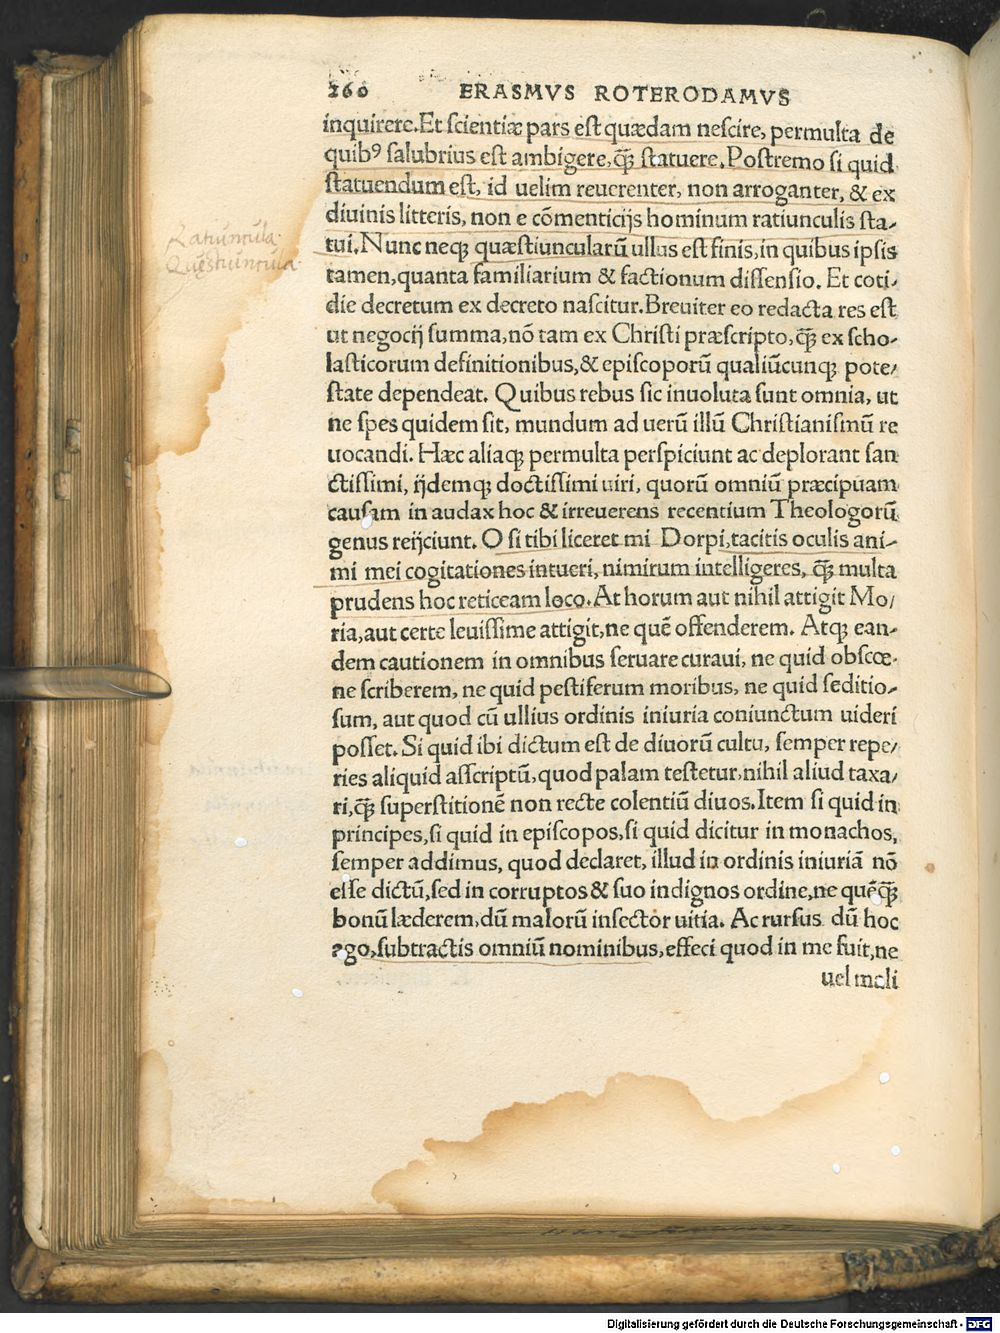 260 ERASMVS ROTERODAMVS
inquirere. Et scientiæ pars est quædam nescire, permulta de
quibꝰ salubrius est ambigere, q̃ꝫ statuere. Postremo si quid
statuendum est, id uelim reuerenter, non arroganter, & ex
diuinis litteris, non e cõmenticijs hominum ratiunculis sta-
tui. Nunc neqꝫ quæstiuncularũ ullus est finis, in quibus ipsis
Ratiuncula.
Quęstiuncula
tamen, quanta familiarium & factionum dissensio. Et coti-
die decretum ex decreto nascitur. Breuiter eo redacta res est
ut negocij summa, nõ tam ex Christi præscripto, q̃ꝫ ex scho-
lasticorum definitionibus, & episcoporũ qualiũcunqꝫ pote/
state dependeat. Quibus rebus sic inuoluta sunt omnia, ut
ne spes quidem sit, mundum ad uerũ illũ Christianismũ re
uocandi. Hæc aliaqꝫ permulta perspiciunt ac deplorant san
ctissimi, ijdemqꝫ doctissimi uiri, quorũ omniũ præcipuam
causam in audax hoc & irreuerens recentium Theologorũ
genus reijciunt. O si tibi liceret mi Dorpi, tacitis oculis ani-
mi mei cogitationes intueri, nimirum intelligeres, q̃ꝫ multa
prudens hoc reticeam loco. At horum aut nihil attigit Mo/
ria, aut certe leuissime attigit, ne quẽ offenderem. Atqꝫ ean-
dem cautionem in omnibus seruare curaui, ne quid obscœ-
ne scriberem, ne quid pestiferum moribus, ne quid seditio-
sum, aut quod cũ ullius ordinis iniuria coniunctum uideri
posset. Si quid ibi dictum est de diuorũ cultu, semper repe/
ries aliquid asscriptũ, quod palam testetur, nihil aliud taxa/
ri, q̃ꝫ superstitionẽ non recte colentiũ diuos. Item si quid in
principes, si quid in episcopos, si quid dicitur in monachos,
semper addimus, quod declaret, illud in ordinis iniuriã nõ
esse dictũ, sed in corruptos & suo indignos ordine, ne quẽq̃ꝫ
bonũ læderem, dũ malorũ insector uitia. Ac rursus dũ hoc
ago, subtractis omniũ nominibus, effeci quod in me fuit, ne
uel mali
Digitalisierung gefördert durch die Deutsche Forschungsgemeinschaft - DFG